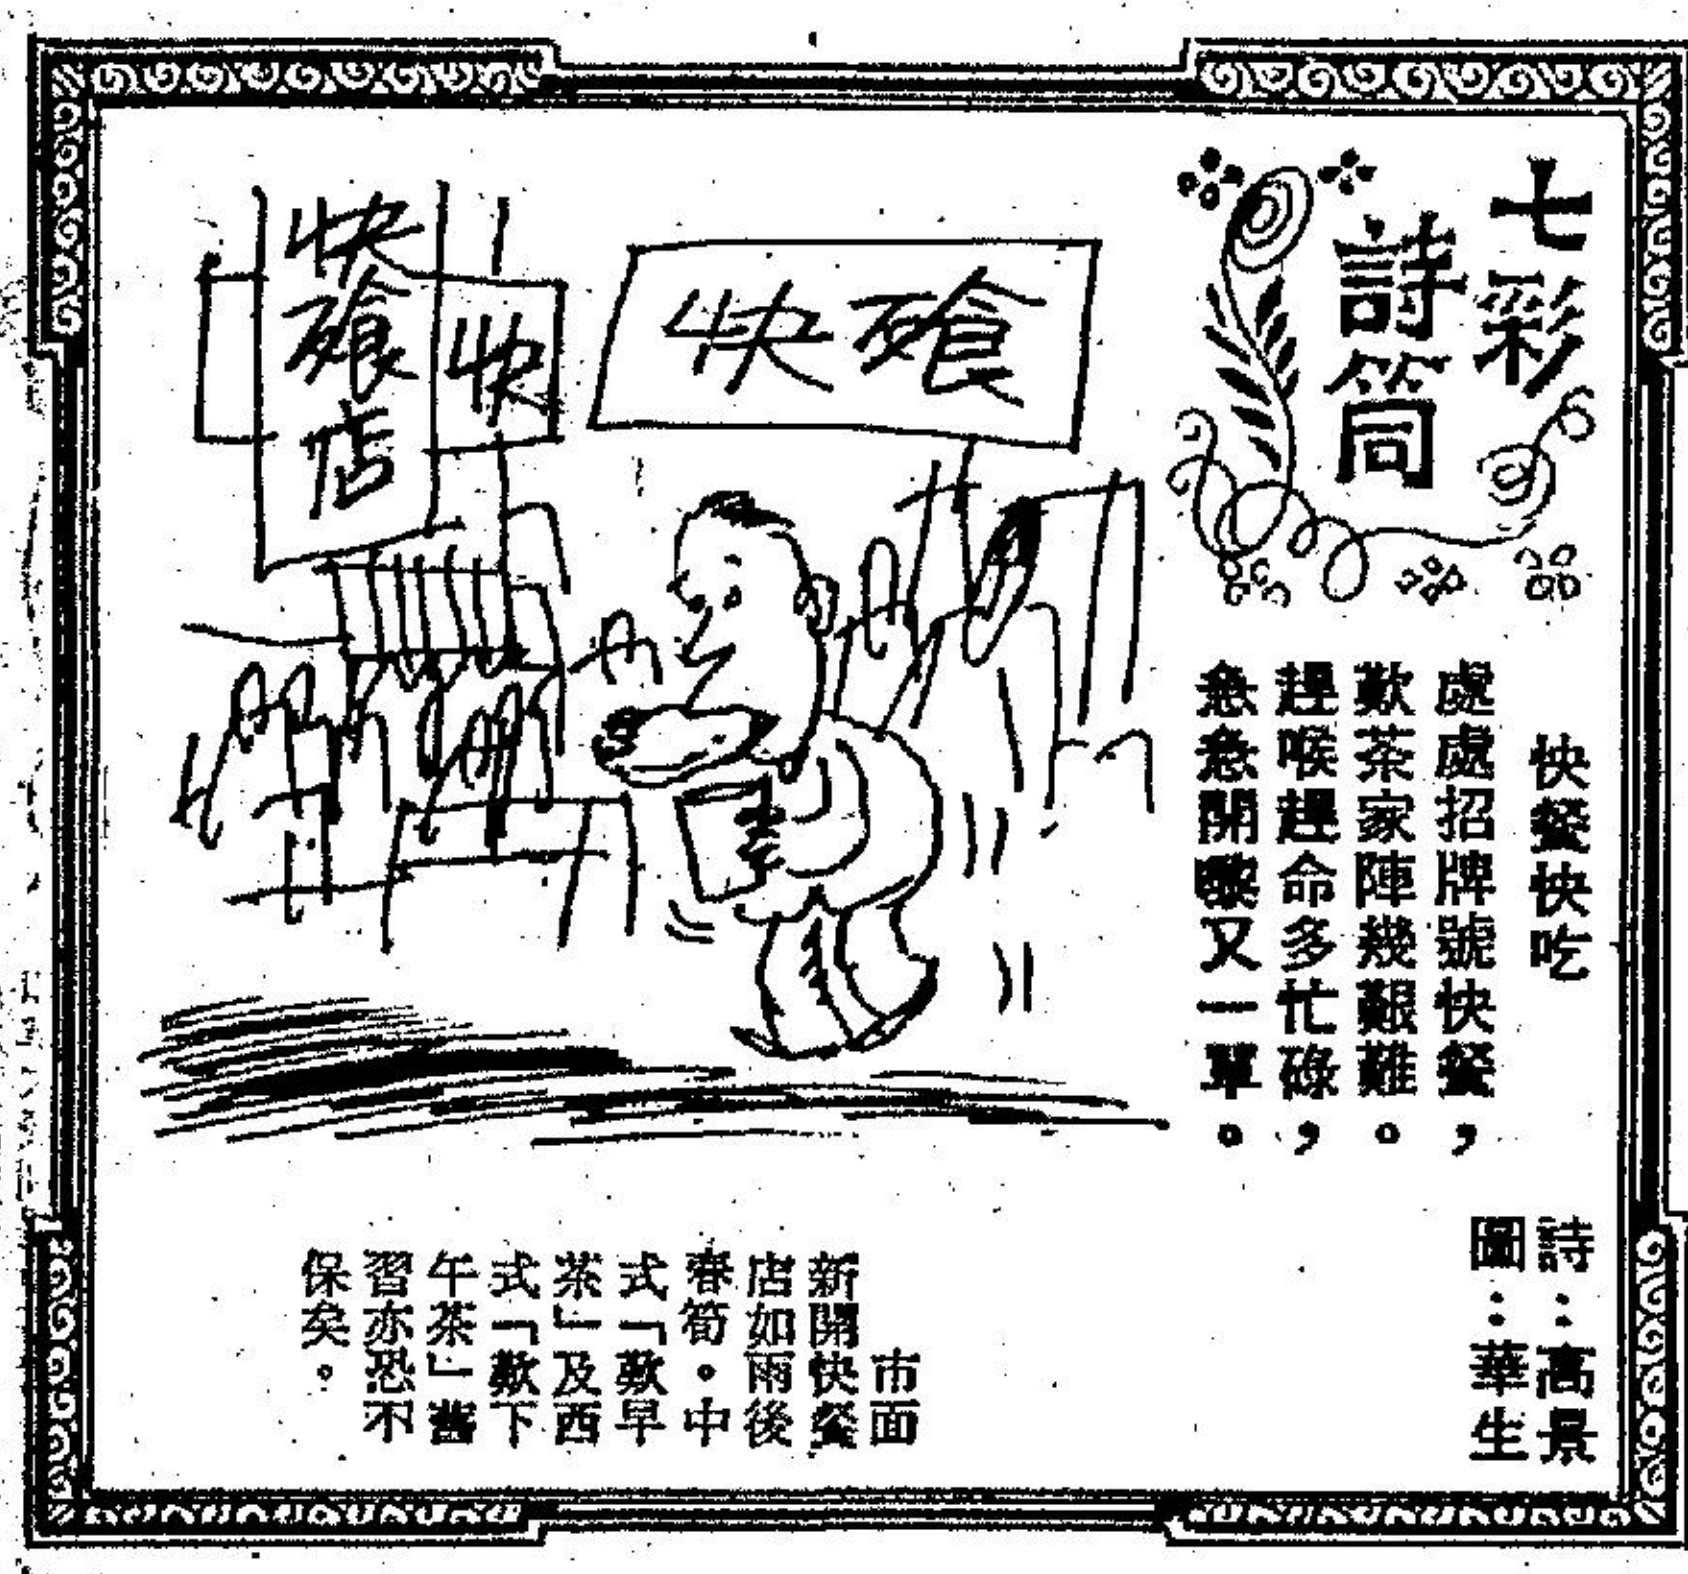 七彩
詩筒
快餐快吃
處處招牌號快餐，
歎茶家陣幾艱難。
趕喉趕命多忙碌，
急急開嚟又一單。
詩：高景
圖：華生
快飱
快
快飱店
市面
新開快餐
店如雨後
春筍。中
式「歎早
茶」及西
式「歎下
午茶」舊
習亦恐不
保矣。